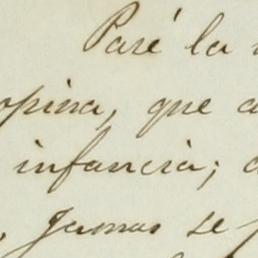 Pasé la
opina, que a
infancia; d
Jamas se